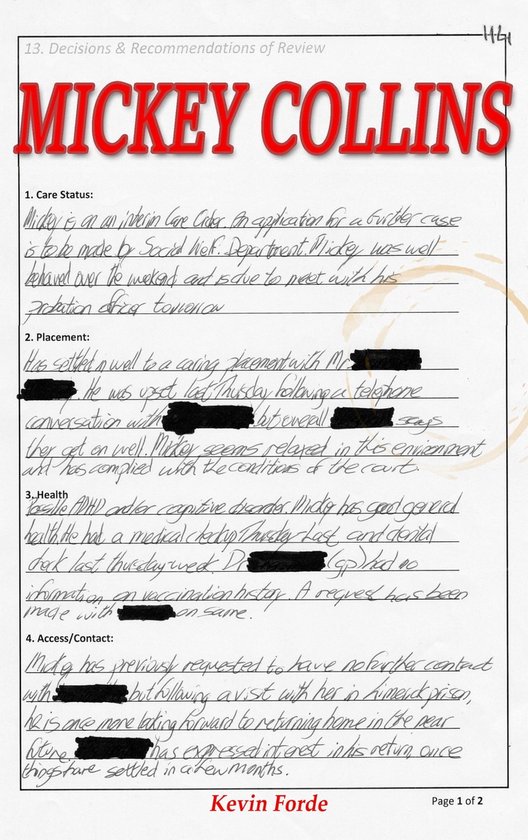 H41
13. Decisions & Recommendations of Review
MICKEY COLLINS
1. Care Status:
Mickey is on an interim Care Order. An application for a further case
is to be made by Social Welf. Department. Mickey was well
behaved over the weekend and is due to meet with his
probation officer tomorrow
2. Placement:
Has settled in well to a caring placement with M
He was upset last Thursday following a telephone
conversation with but overall says
they get on well. Mickey seems relaxed in this environment
and has complied with the conditions of the court.
3. Health
Possible ADHD and/or cognitive disorder. Mickey has good general
health. He had a medical checkup Thursday last and dental
check last thursday week. Dr (gp) had no
information on vaccination history. A request has been
made with on same.
4. Access/Contact:
Mickey has previously requested to have no further contact
with but following a visit with her in Limerick prison,
he is once more looking forward to returning home in the near
future. has expressed interest in his return, once
things have settled in a few months.
Kevin Forde
Page 1 of 2